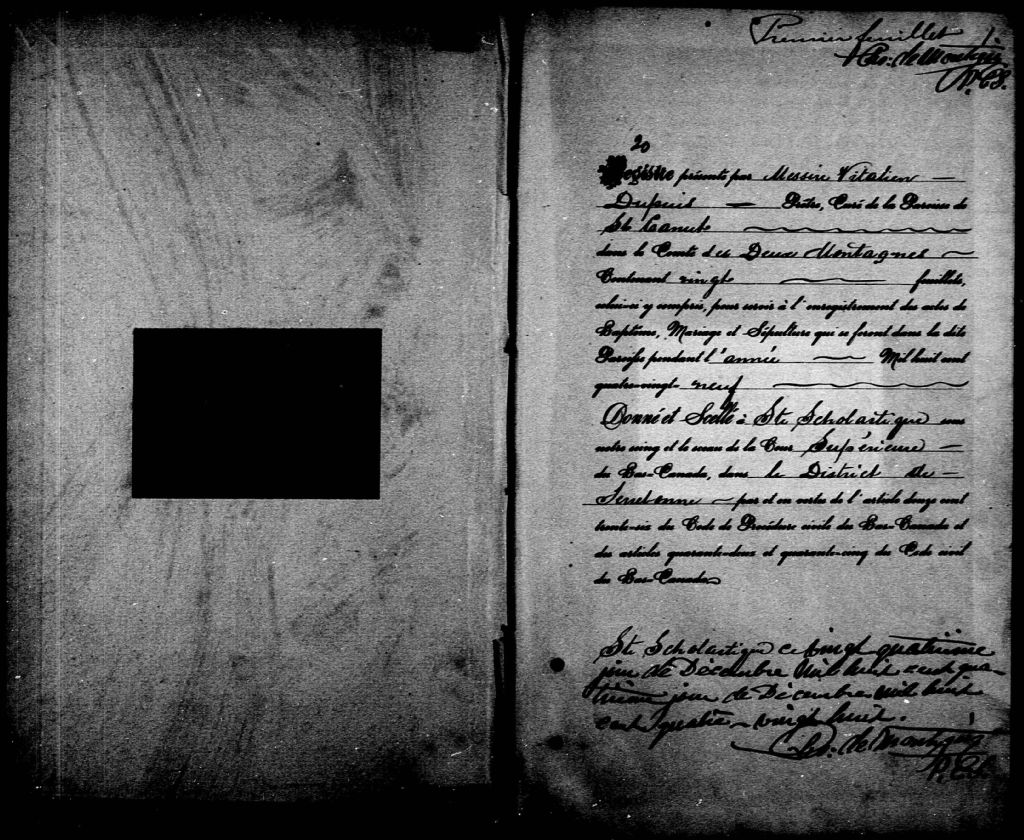 Premier feuillet 1.
de Montigny
P.C.S.
20
Registre présenté par Messire Vitalien
Dupuis Prêtre, Curé de la Paroisse de
Ste Canute
dans le Comté des Deux Montagnes
Contenant vingt feuillets,
celui-ci y compris, pour servir à l'enregistrement des actes de
Baptême, Mariage et Sépulture qui se feront dans la dite
Paroisse pendant l'année Mil huit cent
quatre-vingt- neuf
Donné et Scellé à Ste Scholastique sous
notre seing et le sceau de la Cour Supérieure
du Bas-Canada, dans le District de
Terrebonne par et en vertu de l'article douze cent
trente-six du Code de Procédure civile du Bas-Canada et
des articles quarante-deux et quarante-cinq du Code civil
du Bas-Canada
Ste Scholastique ce vingt quatrième
jour de Décembre Mil huit cent qua-
trième jour de Décembre Mil huit
cent quatre-vingt huit.
de Montigny
P.C.S.